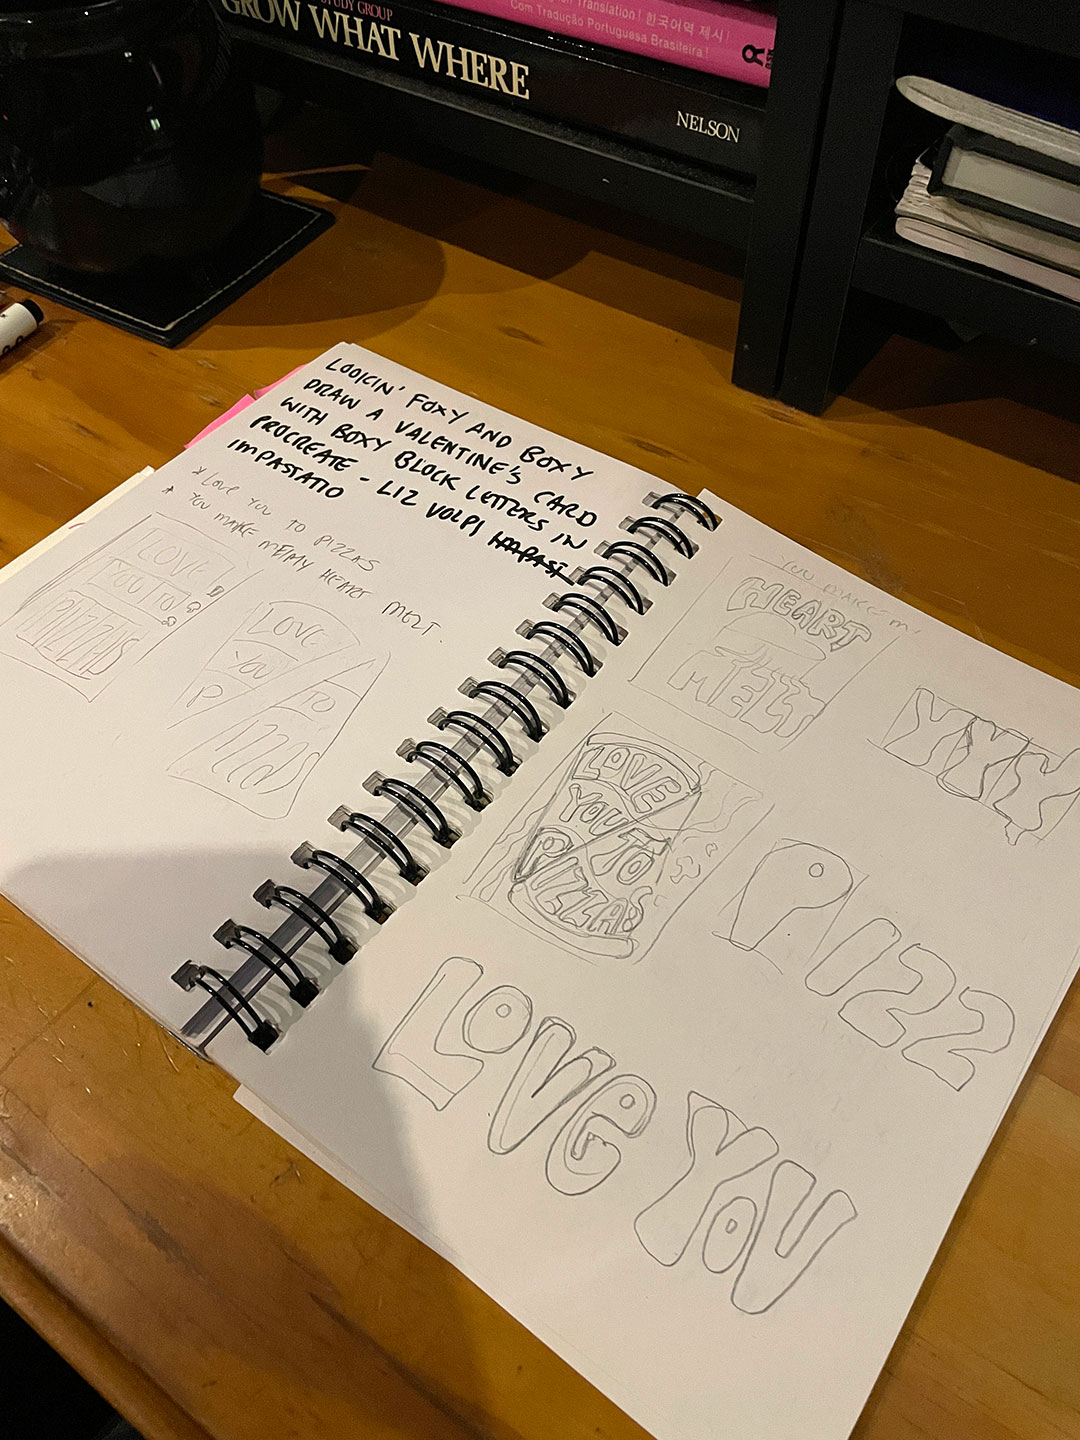 STUDY GROUP
GROW WHAT WHERE
NELSON
Translation! 한국어역 제시!
Com Tradução Portuguesa Brasileira!
LOOKIN' FOXY AND BOXY
DRAW A VALENTINE'S CARD
WITH BOXY BLOCK LETTERS IN
PROCREATE - LIZ VOLPI
IMPASTATO
* LOVE YOU TO PIZZAS
* YOU MAKE ME/MY HEART MELT.
LOVE
YOU TO
PIZZAS
LOVE
YOU
TO
P
YOU MAKE M
HEART
MELT
YYY
LOVE
YOU TO
PIZZAS
PIZZ
LOVE YOU